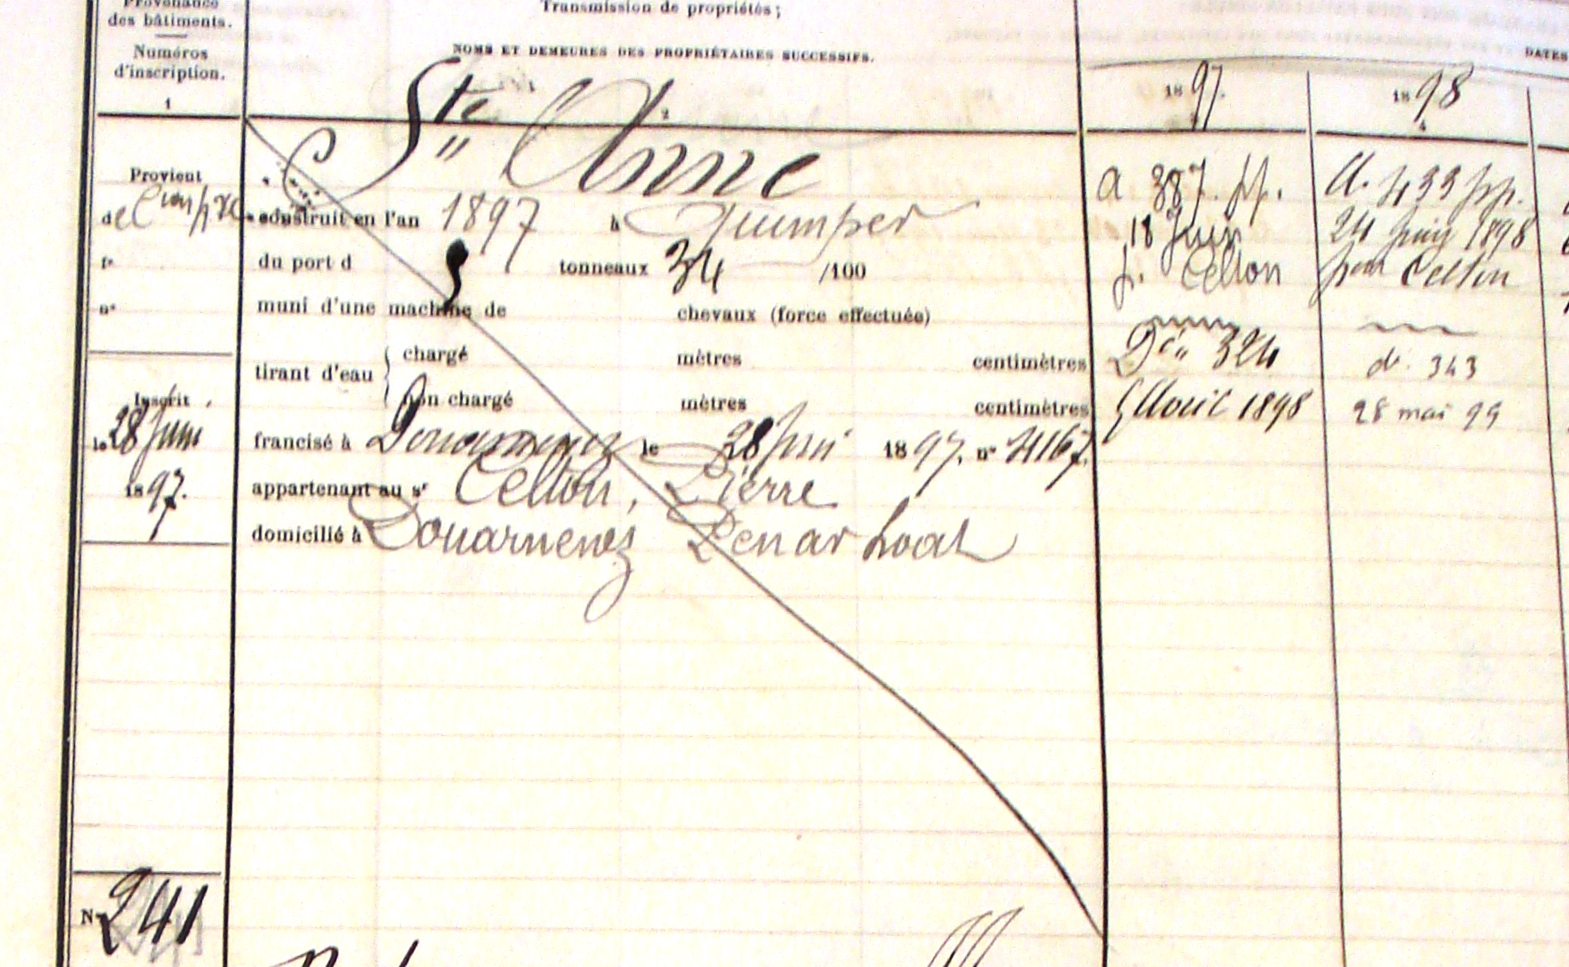 Provenance
des bâtiments.
Numéros
d'inscription.
1
Transmission de propriétés;
NOMS ET DEMEURES DES PROPRIÉTAIRES SUCCESSIFS.
2
DATES
1897.
1898
4
Ste Anne
Provient
de
construit en l'an 1897 à Quimper
tx
du port d 5 tonneaux 34 /100
n°
muni d'une machine de chevaux (force effectuée)
tirant d'eau { chargé mètres centimètres
non chargé mètres centimètres
Inscrit
le 28 Juin
1897.
francisé à Douarnenez le 28 Juin 1897. n° 4167.
appartenant au sr Celton, Pierre
domicilié à Douarnenez Penarhoat
a. 387. pp.
18 Juin
p. Celton
Dée 324
5 Avril 1898
A. 433 pp.
24 Juin 1898
pour Celton
d. 343
28 mai 99
N° 241